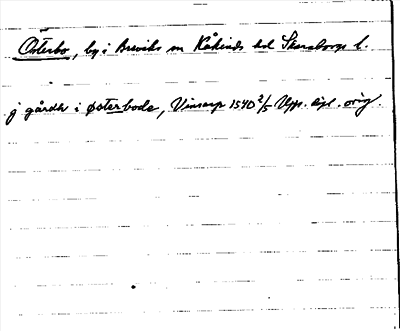 Österbo, by i Breviks sn Kåkinds hd Skaraborgs l.
j gårdh i österbode, Vinsarp 1540 2/5 Upps. dipl. orig.